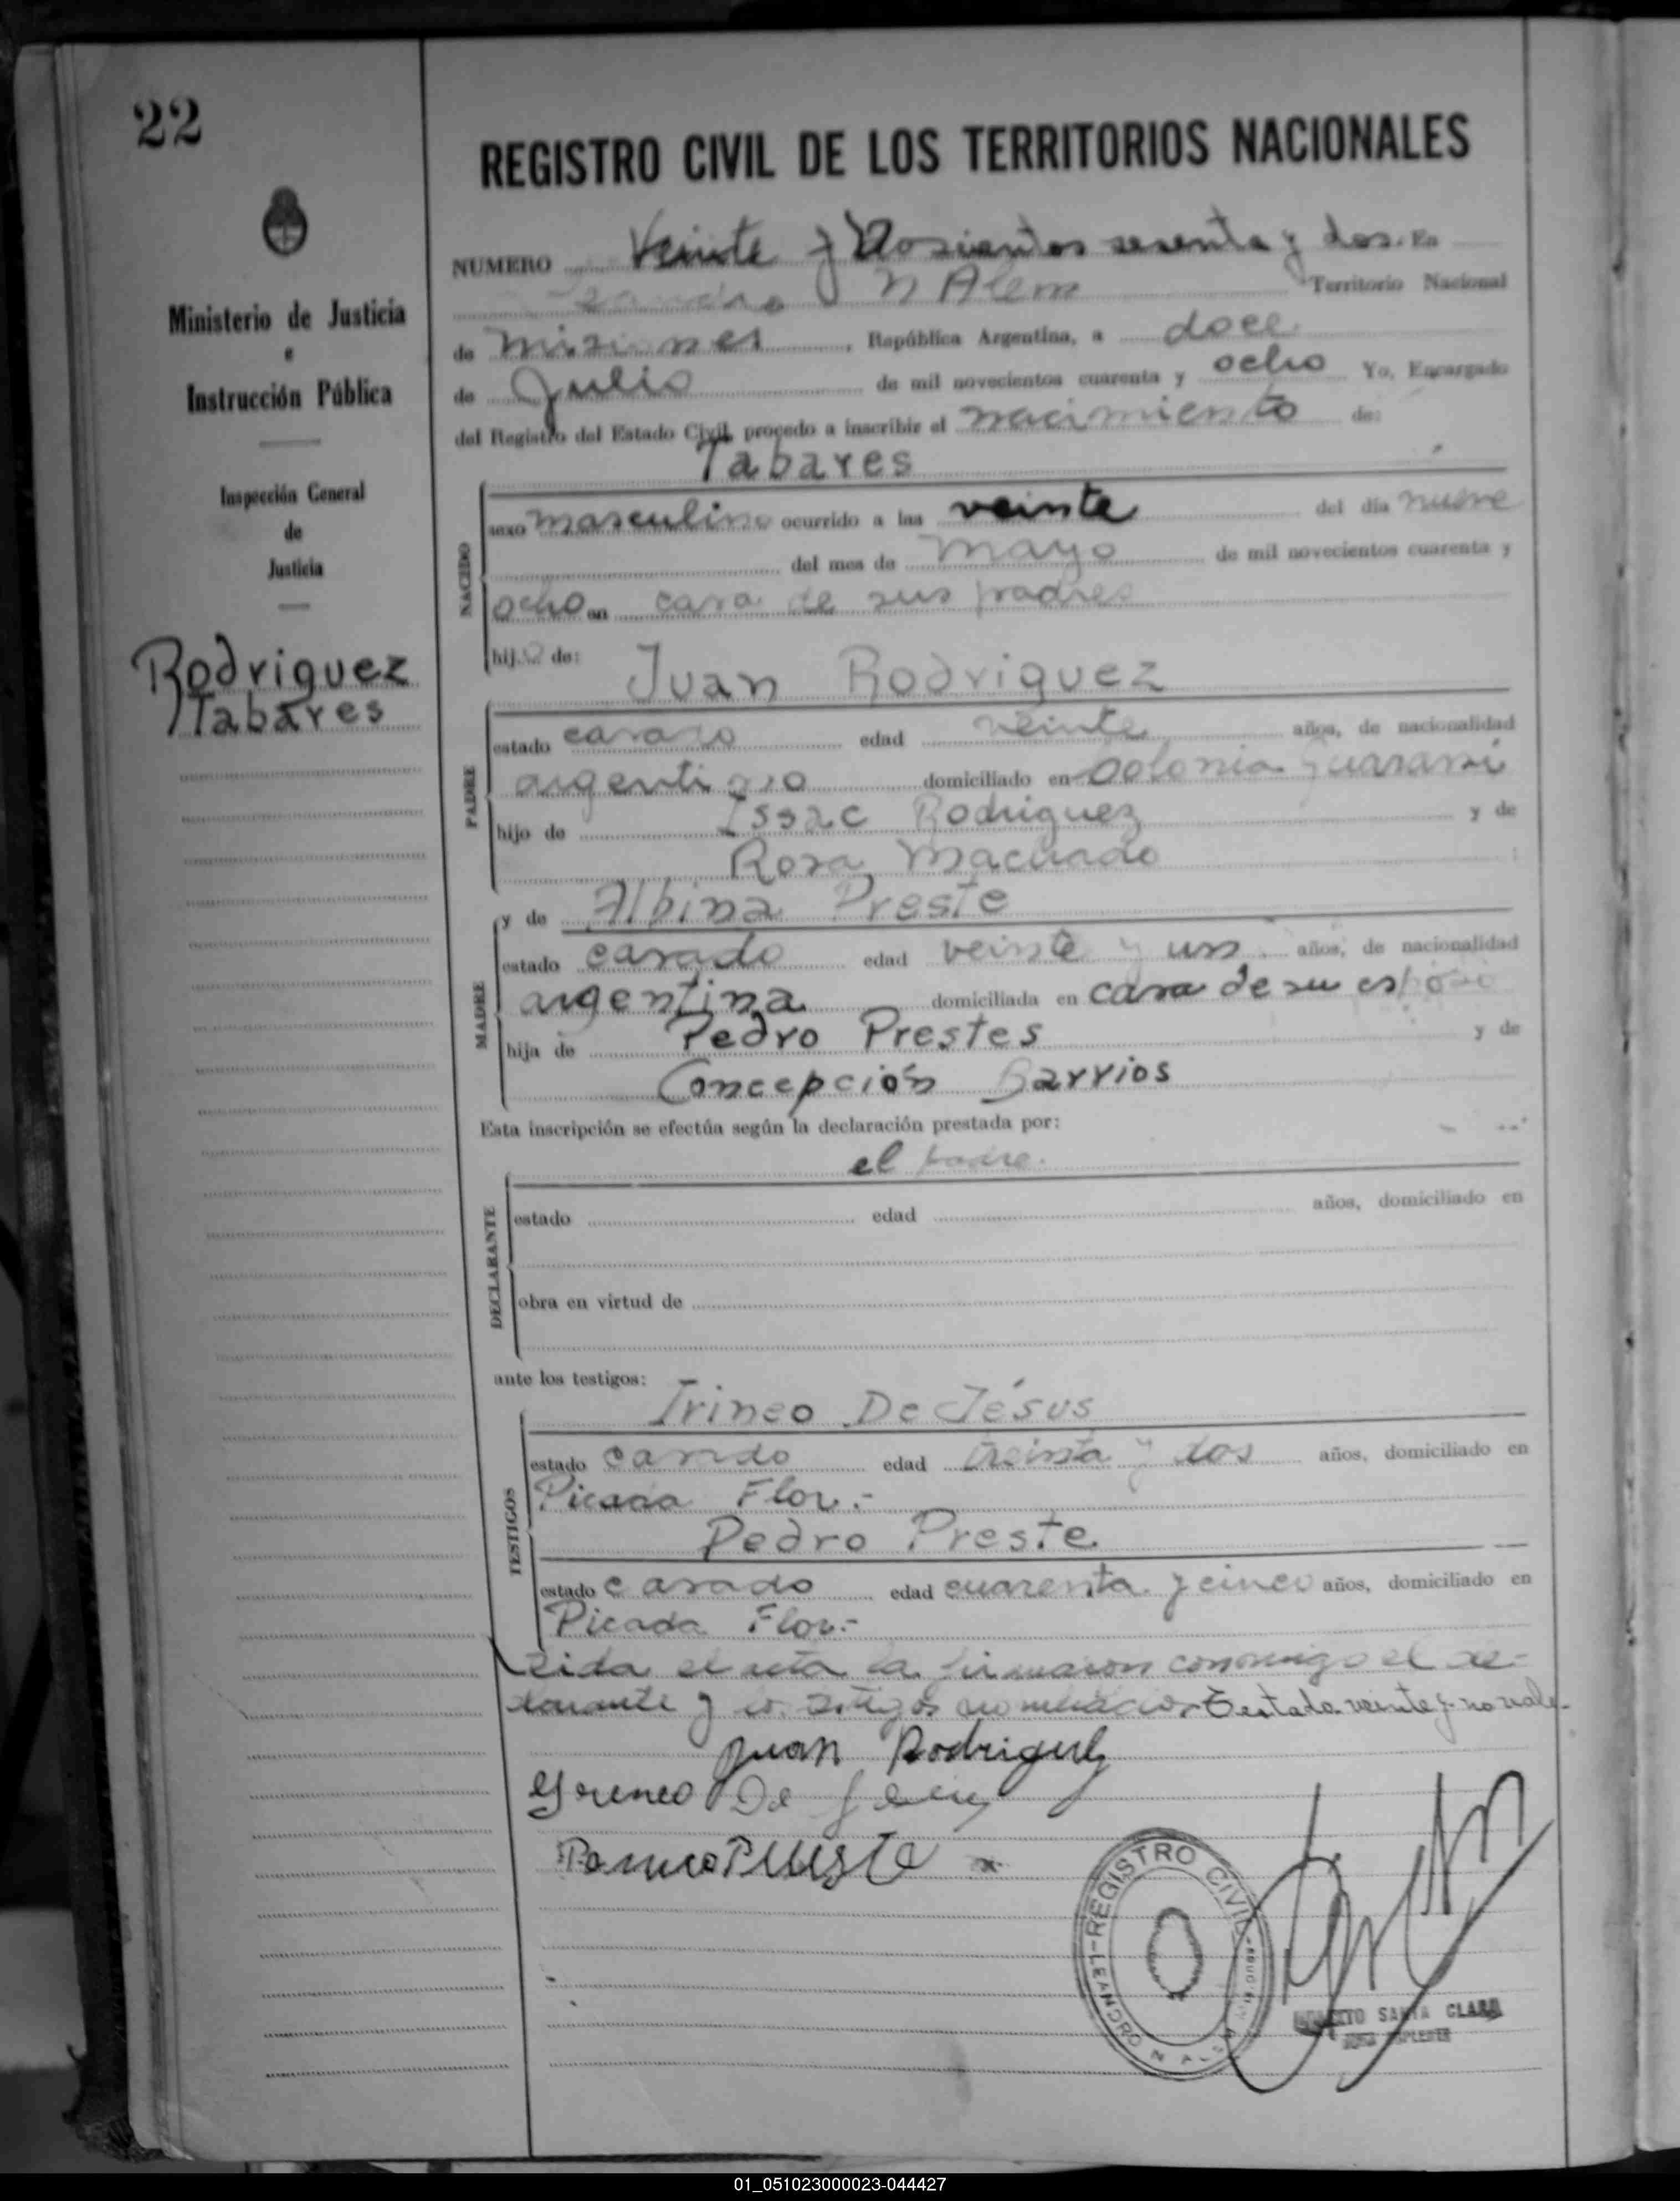 22
REGISTRO CIVIL DE LOS TERRITORIOS NACIONALES
Ministerio de Justicia
e
Instrucción Pública
Inspección General
de
Justicia
Rodriguez
Tabares
NUMERO Veinte y Dosientos sesenta y dos. En
Leandro N Alem Territorio Nacional
de Misiones, República Argentina, a doce
de Julio de mil novecientos cuarenta y ocho Yo, Encargado
del Registro del Estado Civil, procedo a inscribir el nacimiento de:
Tabares
NACIDO
sexo masculino ocurrido a las veinte del día nueve
del mes de mayo de mil novecientos cuarenta y
ocho en casa de sus padres
hijo de:
Juan Rodriguez
PADRE
estado casado edad veinte años, de nacionalidad
argentino domiciliado en Colonia Guaraní
hijo de Issac Rodriguez y de
Rosa Machado
MADRE
y de Albina Preste
estado casado edad veinte y un años, de nacionalidad
argentina domiciliada en casa de su esposo
hija de Pedro Prestes y de
Concepción Barrios
Esta inscripción se efectúa según la declaración prestada por:
el padre.
DECLARANTE
estado edad años, domiciliado en
obra en virtud de
ante los testigos:
TESTIGOS
Irineo De Jésus
estado casado edad treinta y dos años, domiciliado en
Picada Flor.-
Pedro Preste
estado casado edad cuarenta y cinco años, domiciliado en
Picada Flor.-
Leida el acta la firmaron conmigo el de-
clarante y los testigos nombrados. Testado veinte y. no vale.
Juan Rodriguez
Yreneo De
Preste
REGISTRO CIVIL
LEANDRO N. ALEM
SANTA CLARA